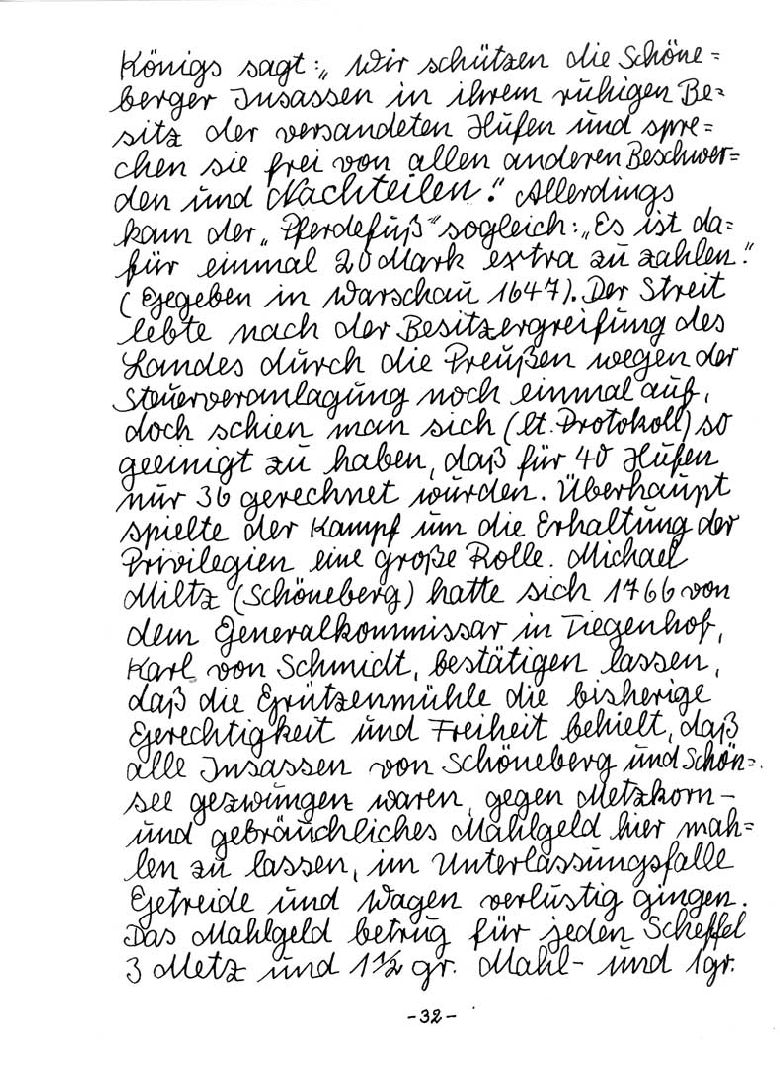 Königs sagt: „Wir schützen die Schöne=
berger Insassen in ihrem ruhigen Be=
sitz der versandeten Hufen und spre=
chen sie frei von allen anderen Beschwer=
den und Nachteilen." Allerdings
kam der „Pferdefuß" sogleich: „Es ist da=
für einmal 20 Mark extra zu zahlen."
(Gegeben in Warschau 1647). Der Streit
lebte nach der Besitzergreifung des
Landes durch die Preußen wegen der
Steuerveranlagung noch einmal auf,
doch schien man sich (lt. Protokoll) so
geeinigt zu haben, daß für 40 Hufen
nur 36 gerechnet wurden. Überhaupt
spielte der Kampf um die Erhaltung der
Privilegien eine große Rolle. Michael
Miltz (Schöneberg) hatte sich 1766 von
dem Generalkommissar in Tiegenhof,
Karl von Schmidt, bestätigen lassen,
daß die Grützenmühle die bisherige
Gerechtigkeit und Freiheit behielt, daß
alle Insassen von Schöneberg und Schön=
see gezwungen waren, gegen Metzkorn-
und gebräuchliches Mahlgeld hier mah=
len zu lassen, im Unterlassungsfalle
Getreide und Wagen verlustig gingen.
Das Mahlgeld betrug für jeden Scheffel
3 Metz und 1½ gr. Mahl- und 1gr.
-32-